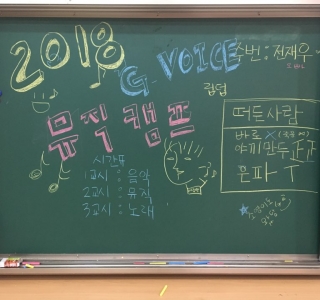 2018
G VOICE
뮤직캠프
주번 : 전재우
랍답
시간표
1교시 : 음악
2교시 : 뮤직
3교시 : 노래
떠든사람
바로 X
야끼만두 正正
문파 T